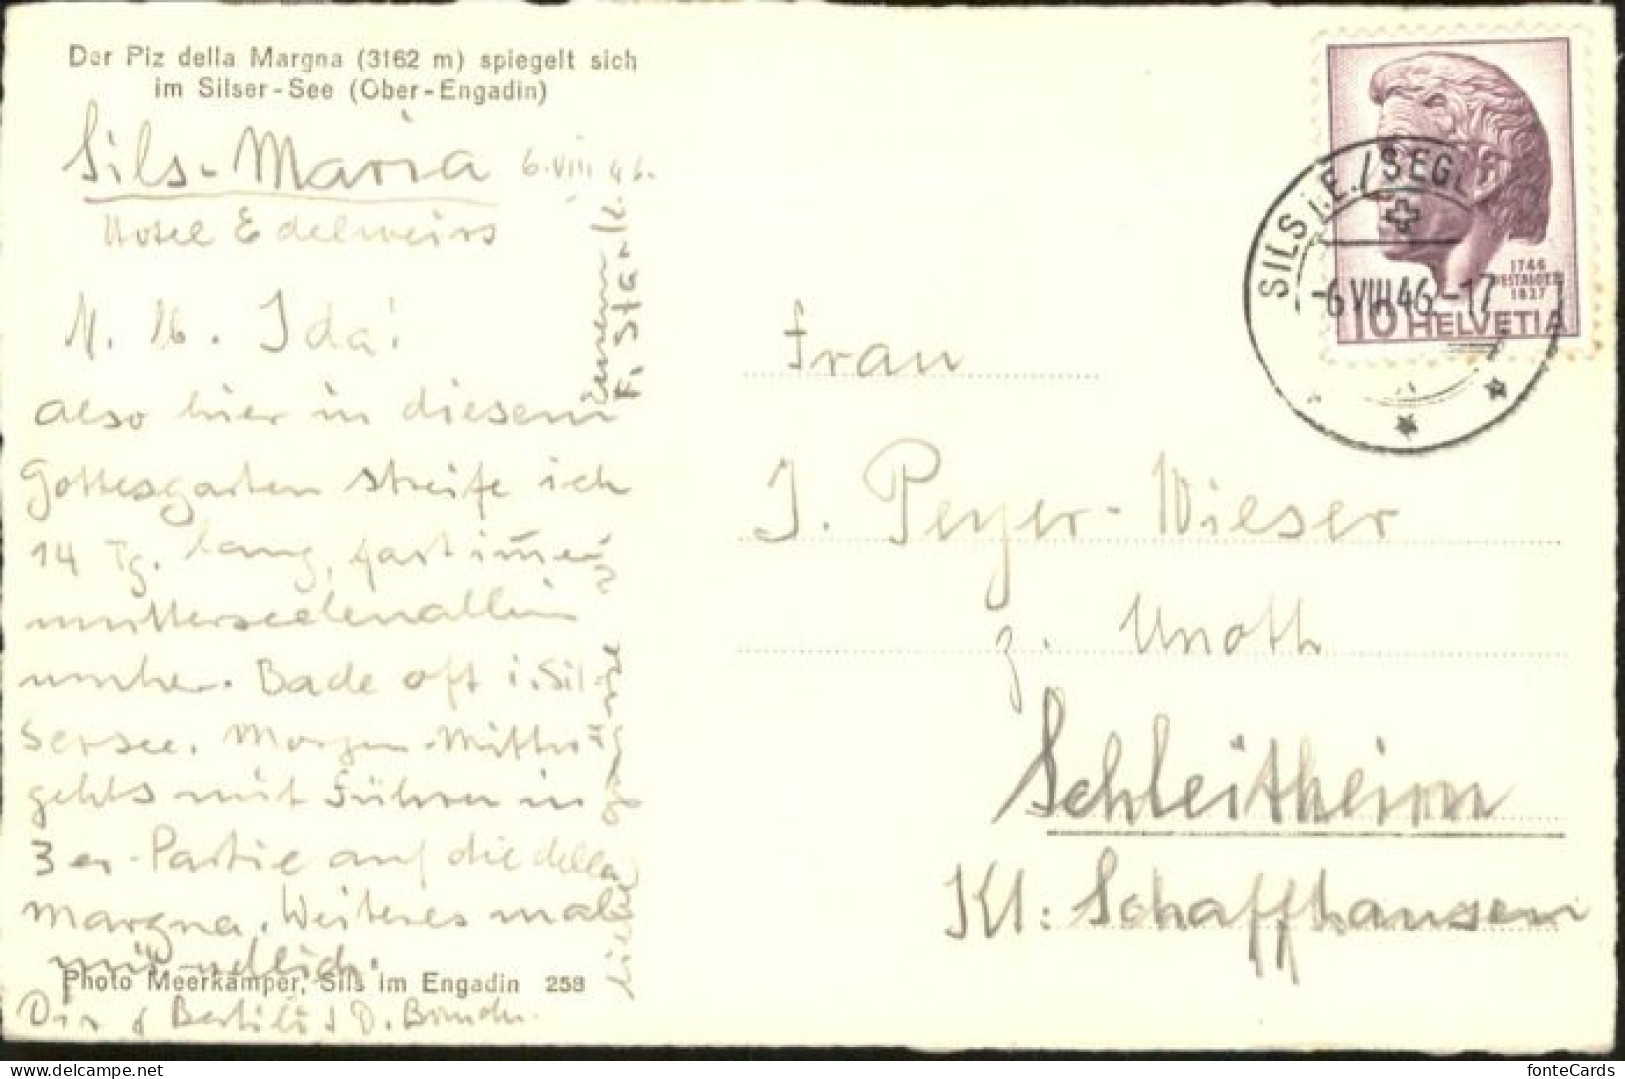 Der Piz della Margna (3162 m) spiegelt sich
im Silser-See (Ober-Engadin)
Sils-Maria 6.VIII 46.
Hotel Edelweiss
M. lb. Ida!
also hier in diesem
Gottesgarten streife ich
14 Tg. lang, fast immer
mutterseelenallein
umher. Bade oft i. Sil-
sersee. Morgen-Mittw
gehts mit Führer in
3er-Partie auf die della
Margna. Weiteres mal
mündlich.
Photo Meerkämper, Sils im Engadin 258
Dir & Bertili & D.
Liebe grüsse
F. Stamm
SILS i.E./SEGL
-6.VIII.46.-17
1746
PESTALOZZI
1827
10 HELVETIA
Frau
I. Peyer-Wieser
z. Unoth
Schleitheim
Kt: Schaffhausen
delcampe.net
fonteCards